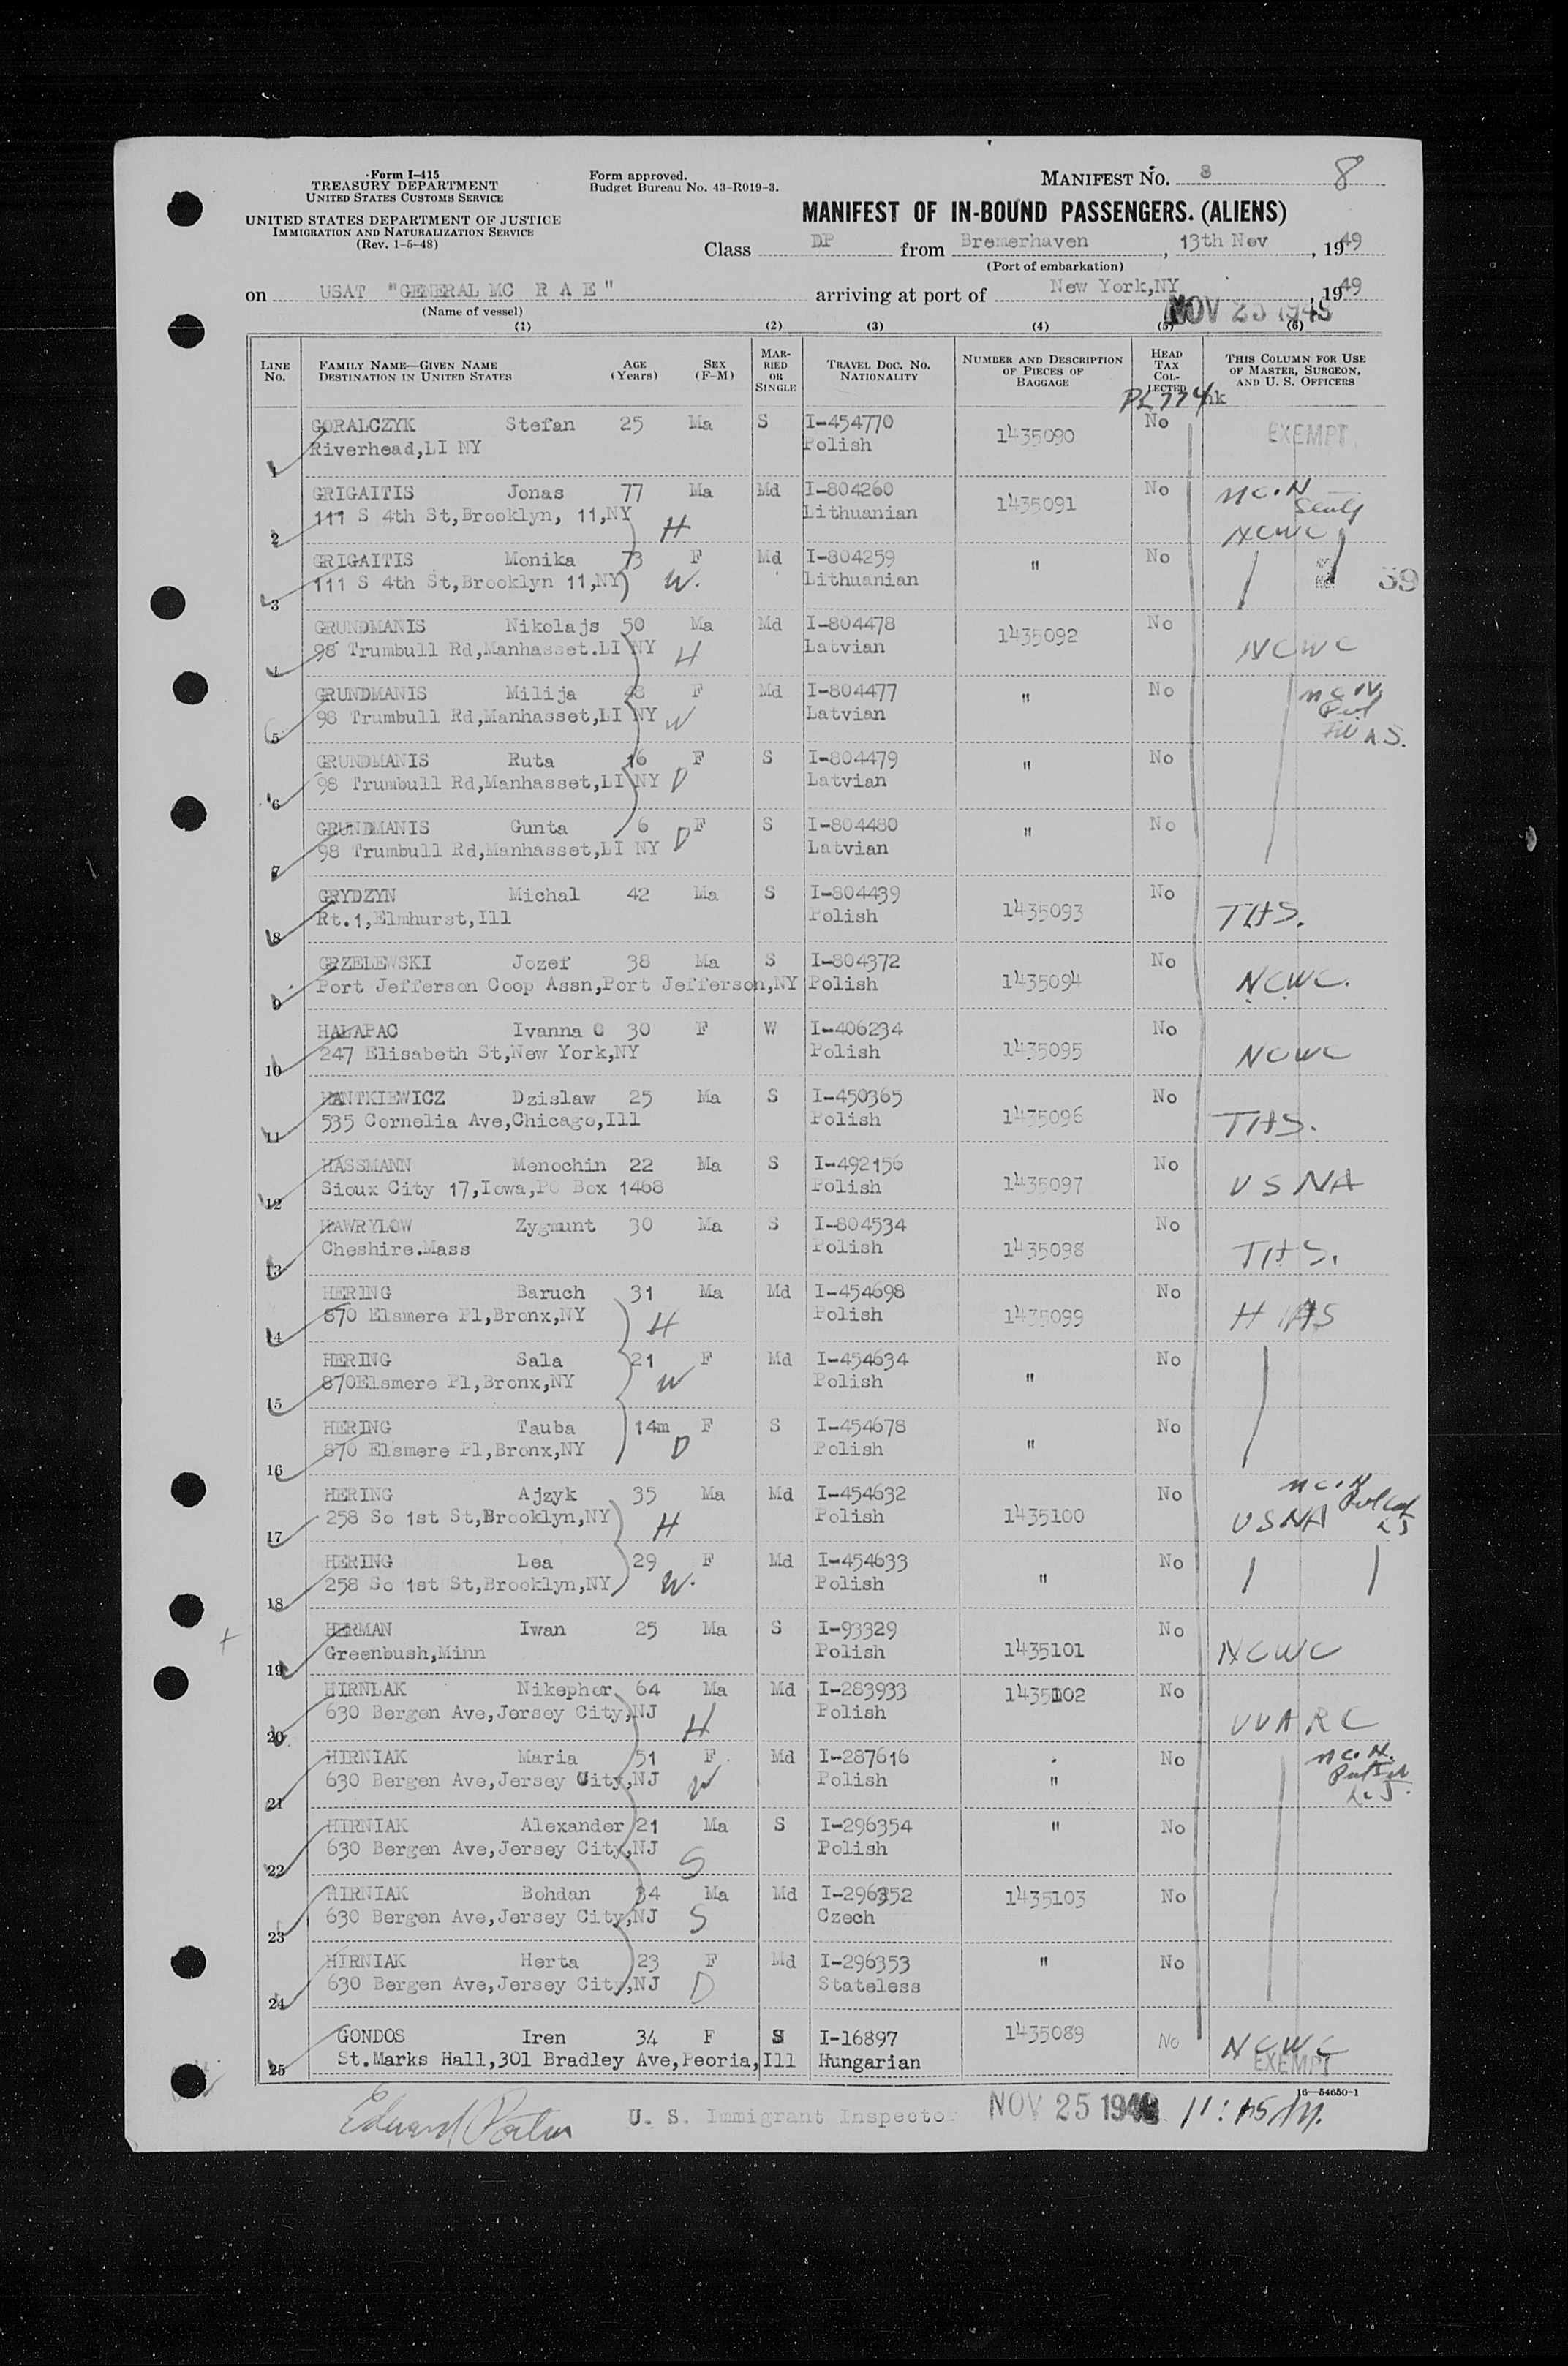 Form I-415
TREASURY DEPARTMENT
UNITED STATES CUSTOMS SERVICE
UNITED STATES DEPARTMENT OF JUSTICE
IMMIGRATION AND NATURALIZATION SERVICE
(Rev. 1-5-48)
Form approved.
Budget Bureau No. 43-R019-3.
MANIFEST NO. 8 8
MANIFEST OF IN-BOUND PASSENGERS. (ALIENS)
Class DP from Bremerhaven, 13th Nov, 1949
(Port of embarkation)
on USAT "GENERAL MC R A E" arriving at port of New York,NY, 1949
(Name of vessel)
NOV 25 1949
(1) (2) (3) (4) (5) (6)
LINE NO. FAMILY NAME—GIVEN NAME DESTINATION IN UNITED STATES AGE (Years) SEX (F-M) MARRIED OR SINGLE TRAVEL DOC. NO. NATIONALITY NUMBER AND DESCRIPTION OF PIECES OF BAGGAGE HEAD TAX COLLECTED THIS COLUMN FOR USE OF MASTER, SURGEON, AND U. S. OFFICERS
PL 774
GORALCZYK Stefan 25 Ma S I-454770 1435090 No EXEMPT
1 Riverhead,LI NY Polish
GRIGAITIS Jonas 77 Ma Md I-804260 1435091 No
2 111 S 4th St,Brooklyn, 11,NY H Lithuanian NCWC
GRIGAITIS Monika 73 F Md I-804259 " No
3 111 S 4th St,Brooklyn 11,NY W. Lithuanian 39
GRUNDMANIS Nikolajs 50 Ma Md I-804478 1435092 No
4 98 Trumbull Rd,Manhasset.LI NY H Latvian NCWC
GRUNDMANIS Milija 48 F Md I-804477 " No
5 98 Trumbull Rd,Manhasset,LI NY W Latvian
GRUNDMANIS Ruta 16 F S I-804479 " No
6 98 Trumbull Rd,Manhasset,LI NY D Latvian
GRUNDMANIS Gunta 6 F S I-804480 " No
7 98 Trumbull Rd,Manhasset,LI NY D Latvian
GRYDZYN Michal 42 Ma S I-804439 1435093 No
8 Rt.1,Elmhurst,Ill Polish THS.
GRZELEWSKI Jozef 38 Ma S I-804372 1435094 No
9 Port Jefferson Coop Assn,Port Jefferson,NY Polish NCWC.
HALAPAC Ivanna C 30 F W I-406234 1435095 No
10 247 Elisabeth St,New York,NY Polish NCWC
HANTKIEWICZ Dzislaw 25 Ma S I-450365 1435096 No
11 535 Cornelia Ave,Chicago,Ill Polish THS.
HASSMANN Menochin 22 Ma S I-492156 1435097 No
12 Sioux City 17,Iowa,PO Box 1468 Polish USNA
HAWRYLOW Zygmunt 30 Ma S I-804534 1435098 No
13 Cheshire.Mass Polish THS.
HERING Baruch 31 Ma Md I-454698 1435099 No
14 870 Elsmere Pl,Bronx,NY H Polish HIAS
HERING Sala 21 F Md I-454634 " No
15 870Elsmere Pl,Bronx,NY W Polish
HERING Tauba 14m F S I-454678 " No
16 870 Elsmere Pl,Bronx,NY D Polish
HERING Ajzyk 35 Ma Md I-454632 1435100 No
17 258 So 1st St,Brooklyn,NY H Polish USNA
HERING Lea 29 F Md I-454633 " No
18 258 So 1st St,Brooklyn,NY W. Polish
HERMAN Iwan 25 Ma S I-93329 1435101 No
19 Greenbush,Minn Polish NCWC
HIRNLAK Nikephor 64 Ma Md I-283933 1435102 No
20 630 Bergen Ave,Jersey City,NJ H Polish UUARC
HIRNIAK Maria 51 F Md I-287616 " No
21 630 Bergen Ave,Jersey City,NJ W Polish
HIRNIAK Alexander 21 Ma S I-296354 " No
22 630 Bergen Ave,Jersey City,NJ S Polish
HIRNIAK Bohdan 34 Ma Md I-296352 1435103 No
23 630 Bergen Ave,Jersey City,NJ S Czech
HIRNIAK Herta 23 F Md I-296353 " No
24 630 Bergen Ave,Jersey City,NJ D Stateless
GONDOS Iren 34 F S I-16897 1435089 No NCWC
25 St.Marks Hall,301 Bradley Ave,Peoria,Ill Hungarian EXEMPT
16—54650-1
Edward U. S. Immigrant Inspector NOV 25 1949